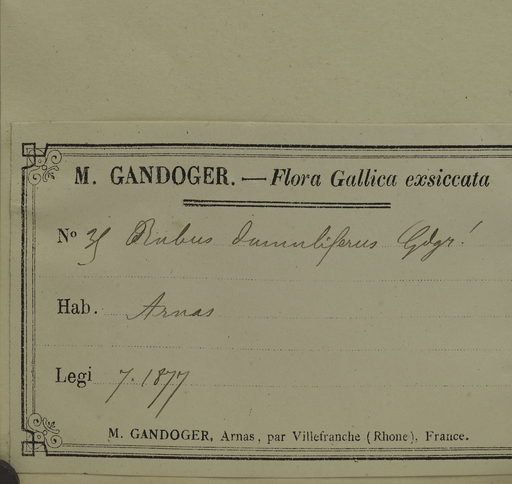 M. GANDOGER. — Flora Gallica exsiccata
Nº Rubus dumuliferus Gdgr!
Hab. Arnas
Legi 7. 1877
M. GANDOGER, Arnas, par Villefranche (Rhone), France.